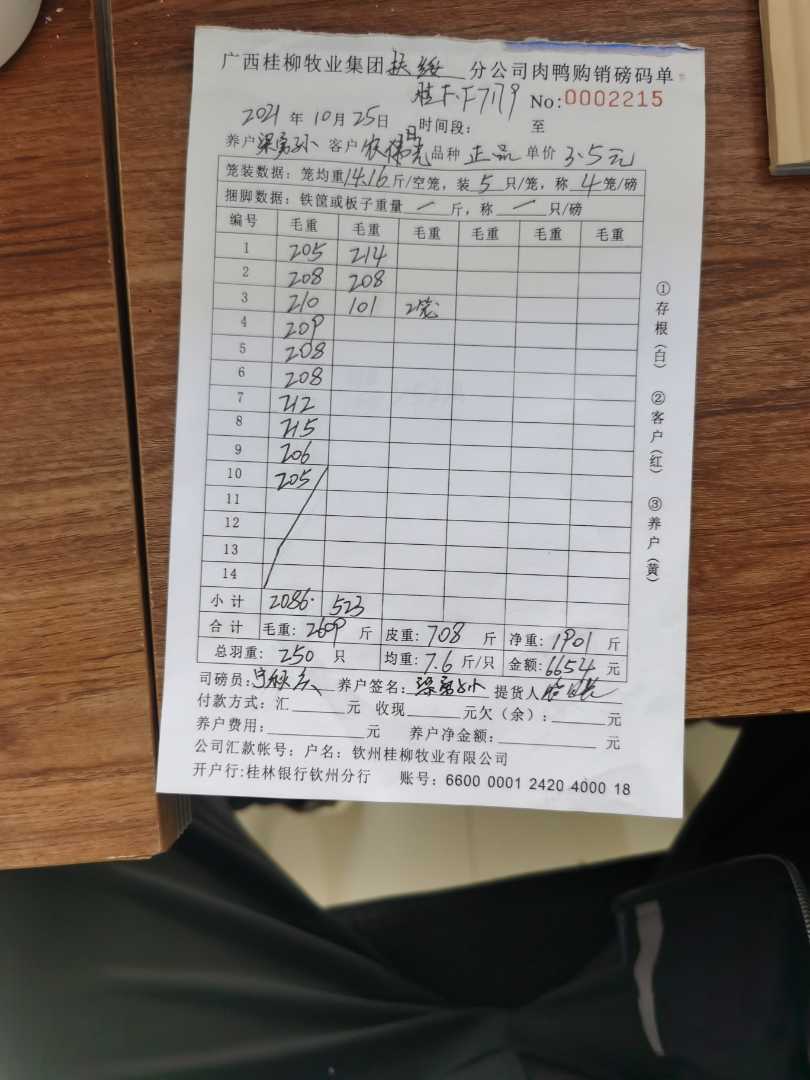 广西桂柳牧业集团扶绥分公司肉鸭购销磅码单
桂F·F7179 No:0002215
2021年10月25日 时间段: 至
养户 客户 品种 正品 单价 3.5元
笼装数据: 笼均重14.16斤/空笼, 装5只/笼, 称4笼/磅
捆脚数据: 铁筐或板子重量 一 斤, 称 一 只/磅
编号 毛重 毛重 毛重 毛重 毛重 毛重
1 205 214
2 208 208
3 210 101 2笼
4 209
5 208
6 208
7 212
8 215
9 206
10 205
11
12
13
14
小计 2086. 523
合计 毛重: 2609 斤 皮重: 708 斤 净重: 1901 斤
总羽重: 250 只 均重: 7.6 斤/只 金额: 6654 元
司磅员: 养户签名: 提货人
付款方式: 汇______元 收现______元欠(余): ______元
养户费用: ______元 养户净金额: ______元
公司汇款帐号: 户名: 钦州桂柳牧业有限公司
开户行:桂林银行钦州分行 账号: 6600 0001 2420 4000 18
①存根(白) ②客户(红) ③养户(黄)